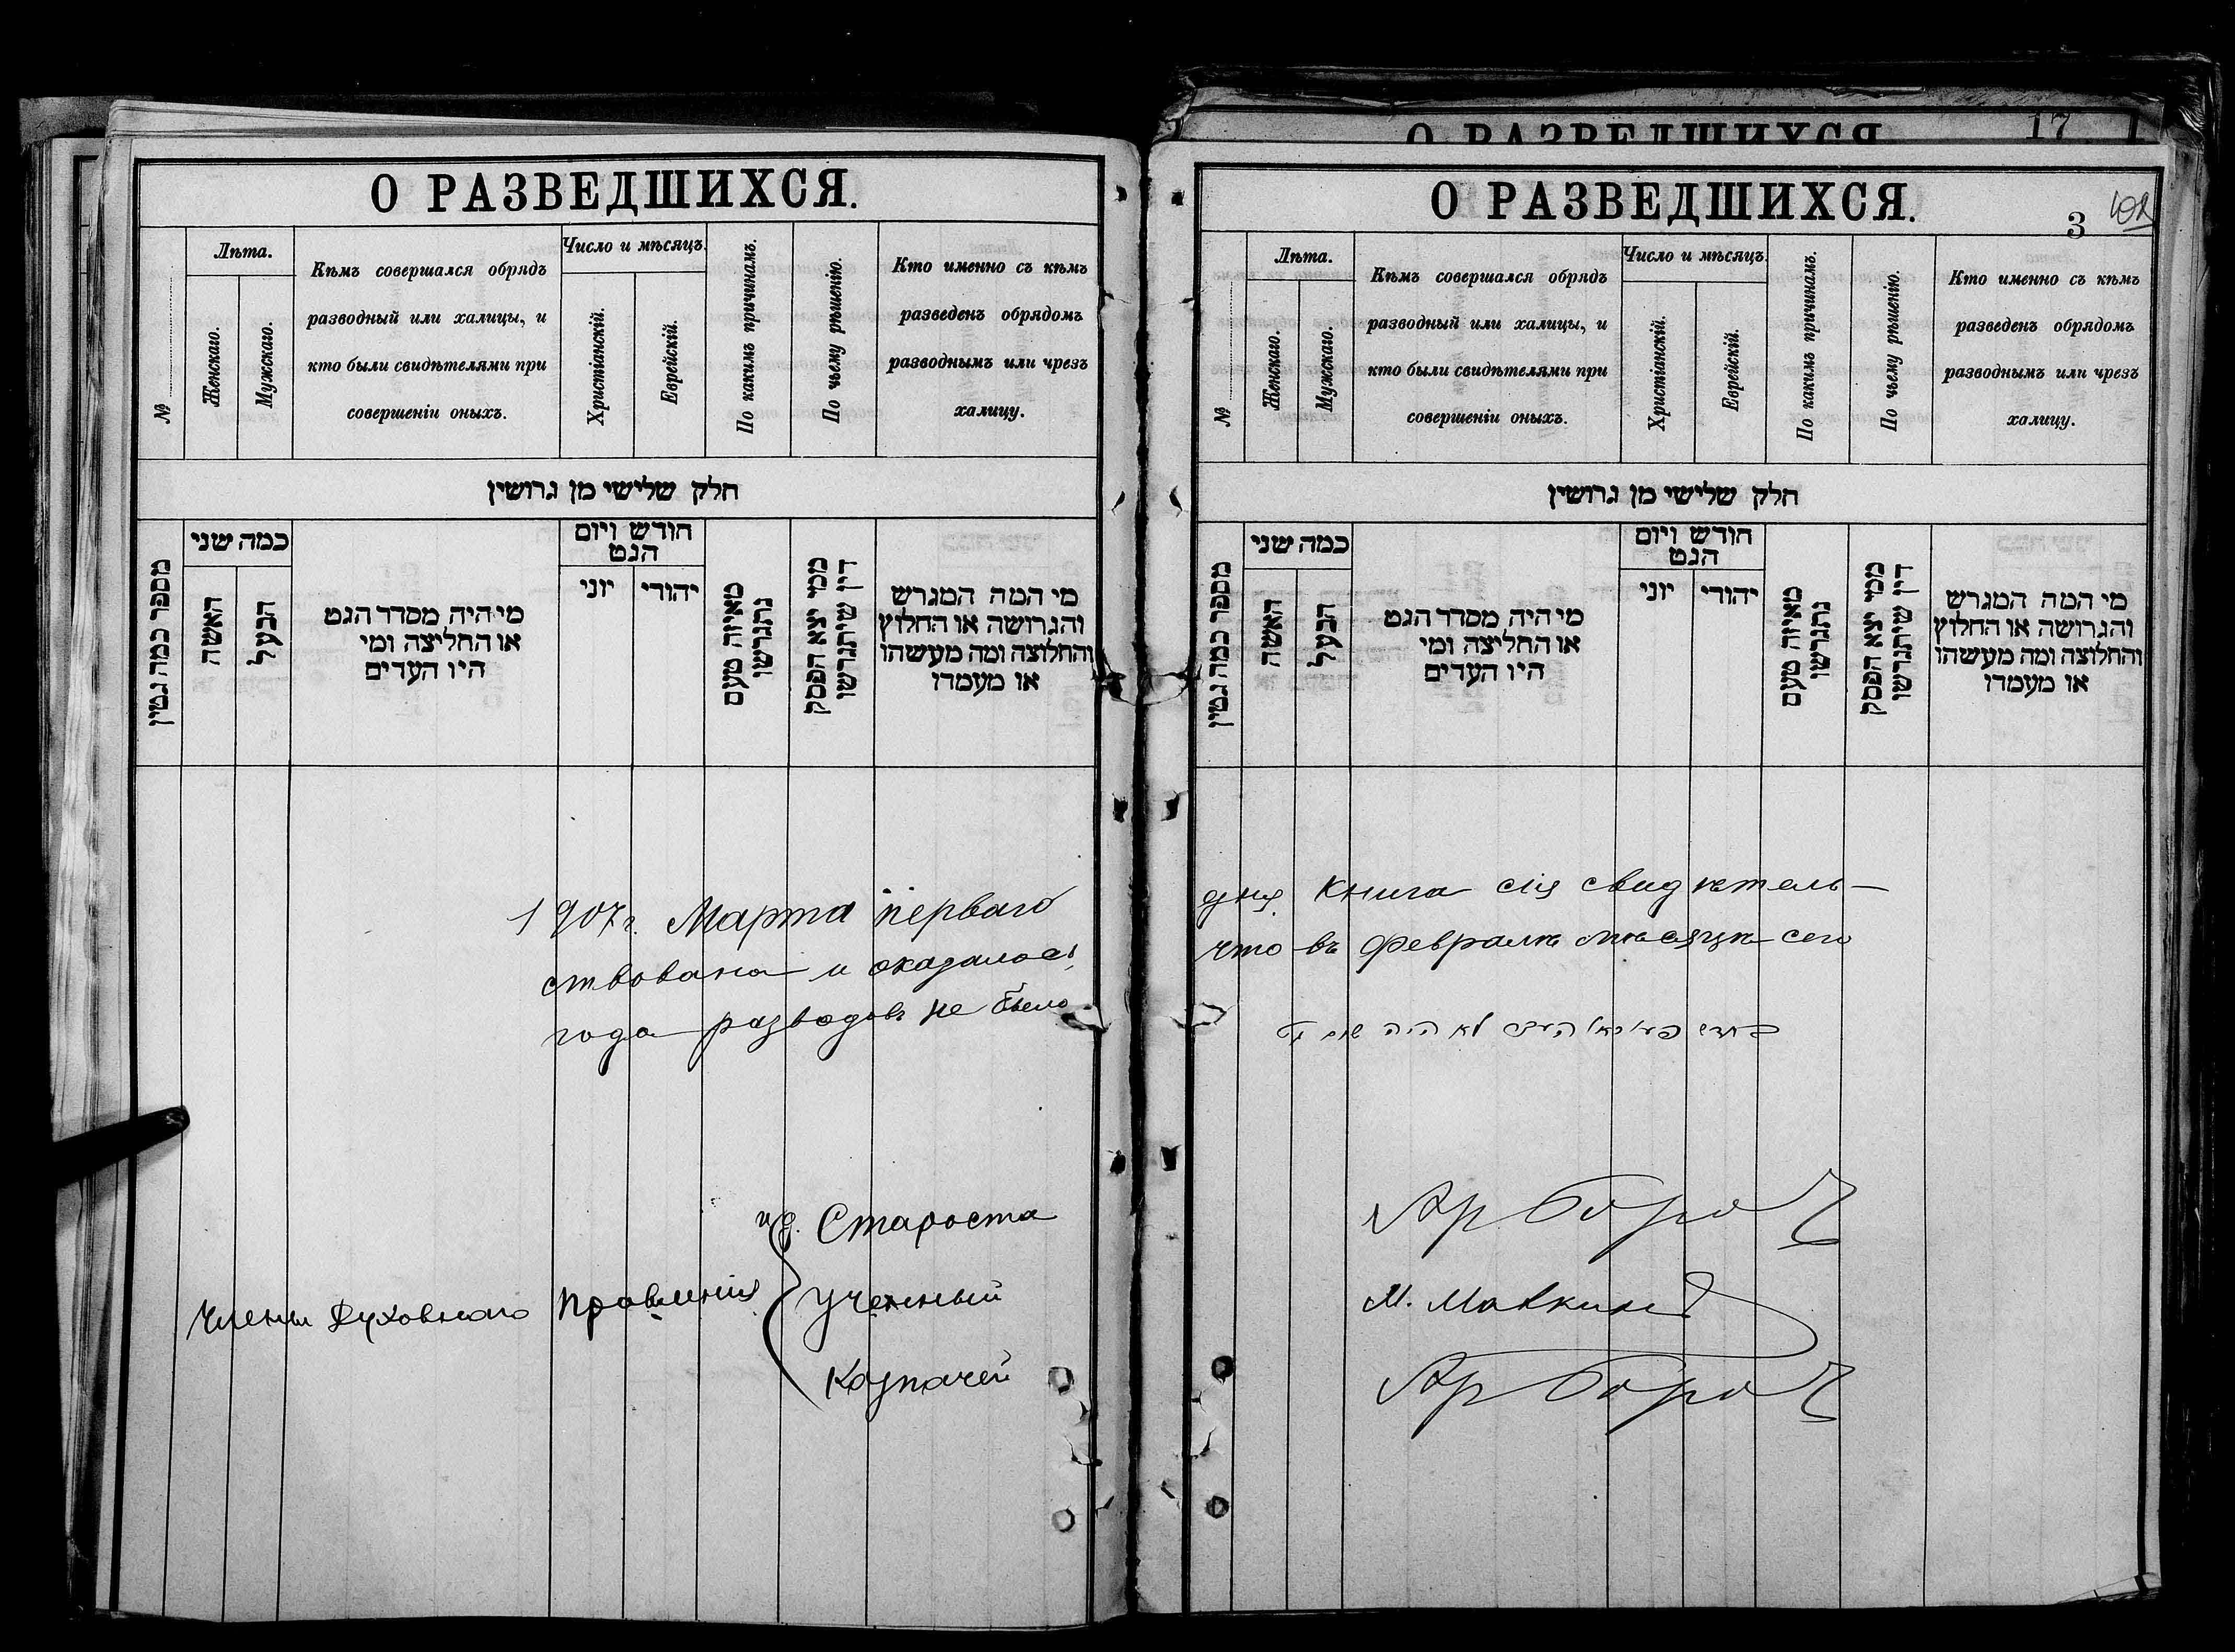 О РАЗВЕДШИХСЯ.
№
Лѣта.
Женскаго.
Мужскаго.
Кѣмъ совершался обрядъ
разводный или халицы, и
кто были свидѣтелями при
совершеніи оныхъ.
Число и мѣсяцъ.
Христіанскій.
Еврейскій.
По какимъ причинамъ.
По чьему рѣшенію.
Кто именно съ кѣмъ
разведенъ обрядомъ
разводнымъ или чрезъ
халицу.
חלק שלישי מן גרושין
מספר כמה גטין
כמה שני
האשה
הבעל
מי היה מסדר הגט
או החליצה ומי
היו העדים
חודש ויום
הגט
יוני
יהודי
מאיזה טעם
נתגרשו
ממי יצא הפסק
דין שיתגרשו
מי המה המגרש
והגרושה או החלוץ
והחלוצה ומה מעשהו
או מעמדו
1907 г. Марта перваго
ствована и оказалось,
года разводовъ не было
и. д. Староста
Члены Духовнаго Правленія
Ученный
Казначей
О РАЗВЕДШИХСЯ
17
О РАЗВЕДШИХСЯ.
3
102
№
Лѣта.
Женскаго.
Мужскаго.
Кѣмъ совершался обрядъ
разводный или халицы, и
кто были свидѣтелями при
совершеніи оныхъ.
Число и мѣсяцъ.
Христіанскій.
Еврейскій.
По какимъ причинамъ.
По чьему рѣшенію.
Кто именно съ кѣмъ
разведенъ обрядомъ
разводнымъ или чрезъ
халицу.
חלק שלישי מן גרושין
מספר כמה גטין
כמה שני
האשה
הבעל
מי היה מסדר הגט
או החליצה ומי
היו העדים
חודש ויום
הגט
יוני
יהודי
מאיזה טעם
נתגרשו
ממי יצא הפסק
דין שיתגרשו
מי המה המגרש
והגרושה או החלוץ
והחלוצה ומה מעשהו
או מעמדו
дня Книга сія свидѣтель-
что въ Февралѣ мѣсяцѣ сего
לא היה שום גט
М.